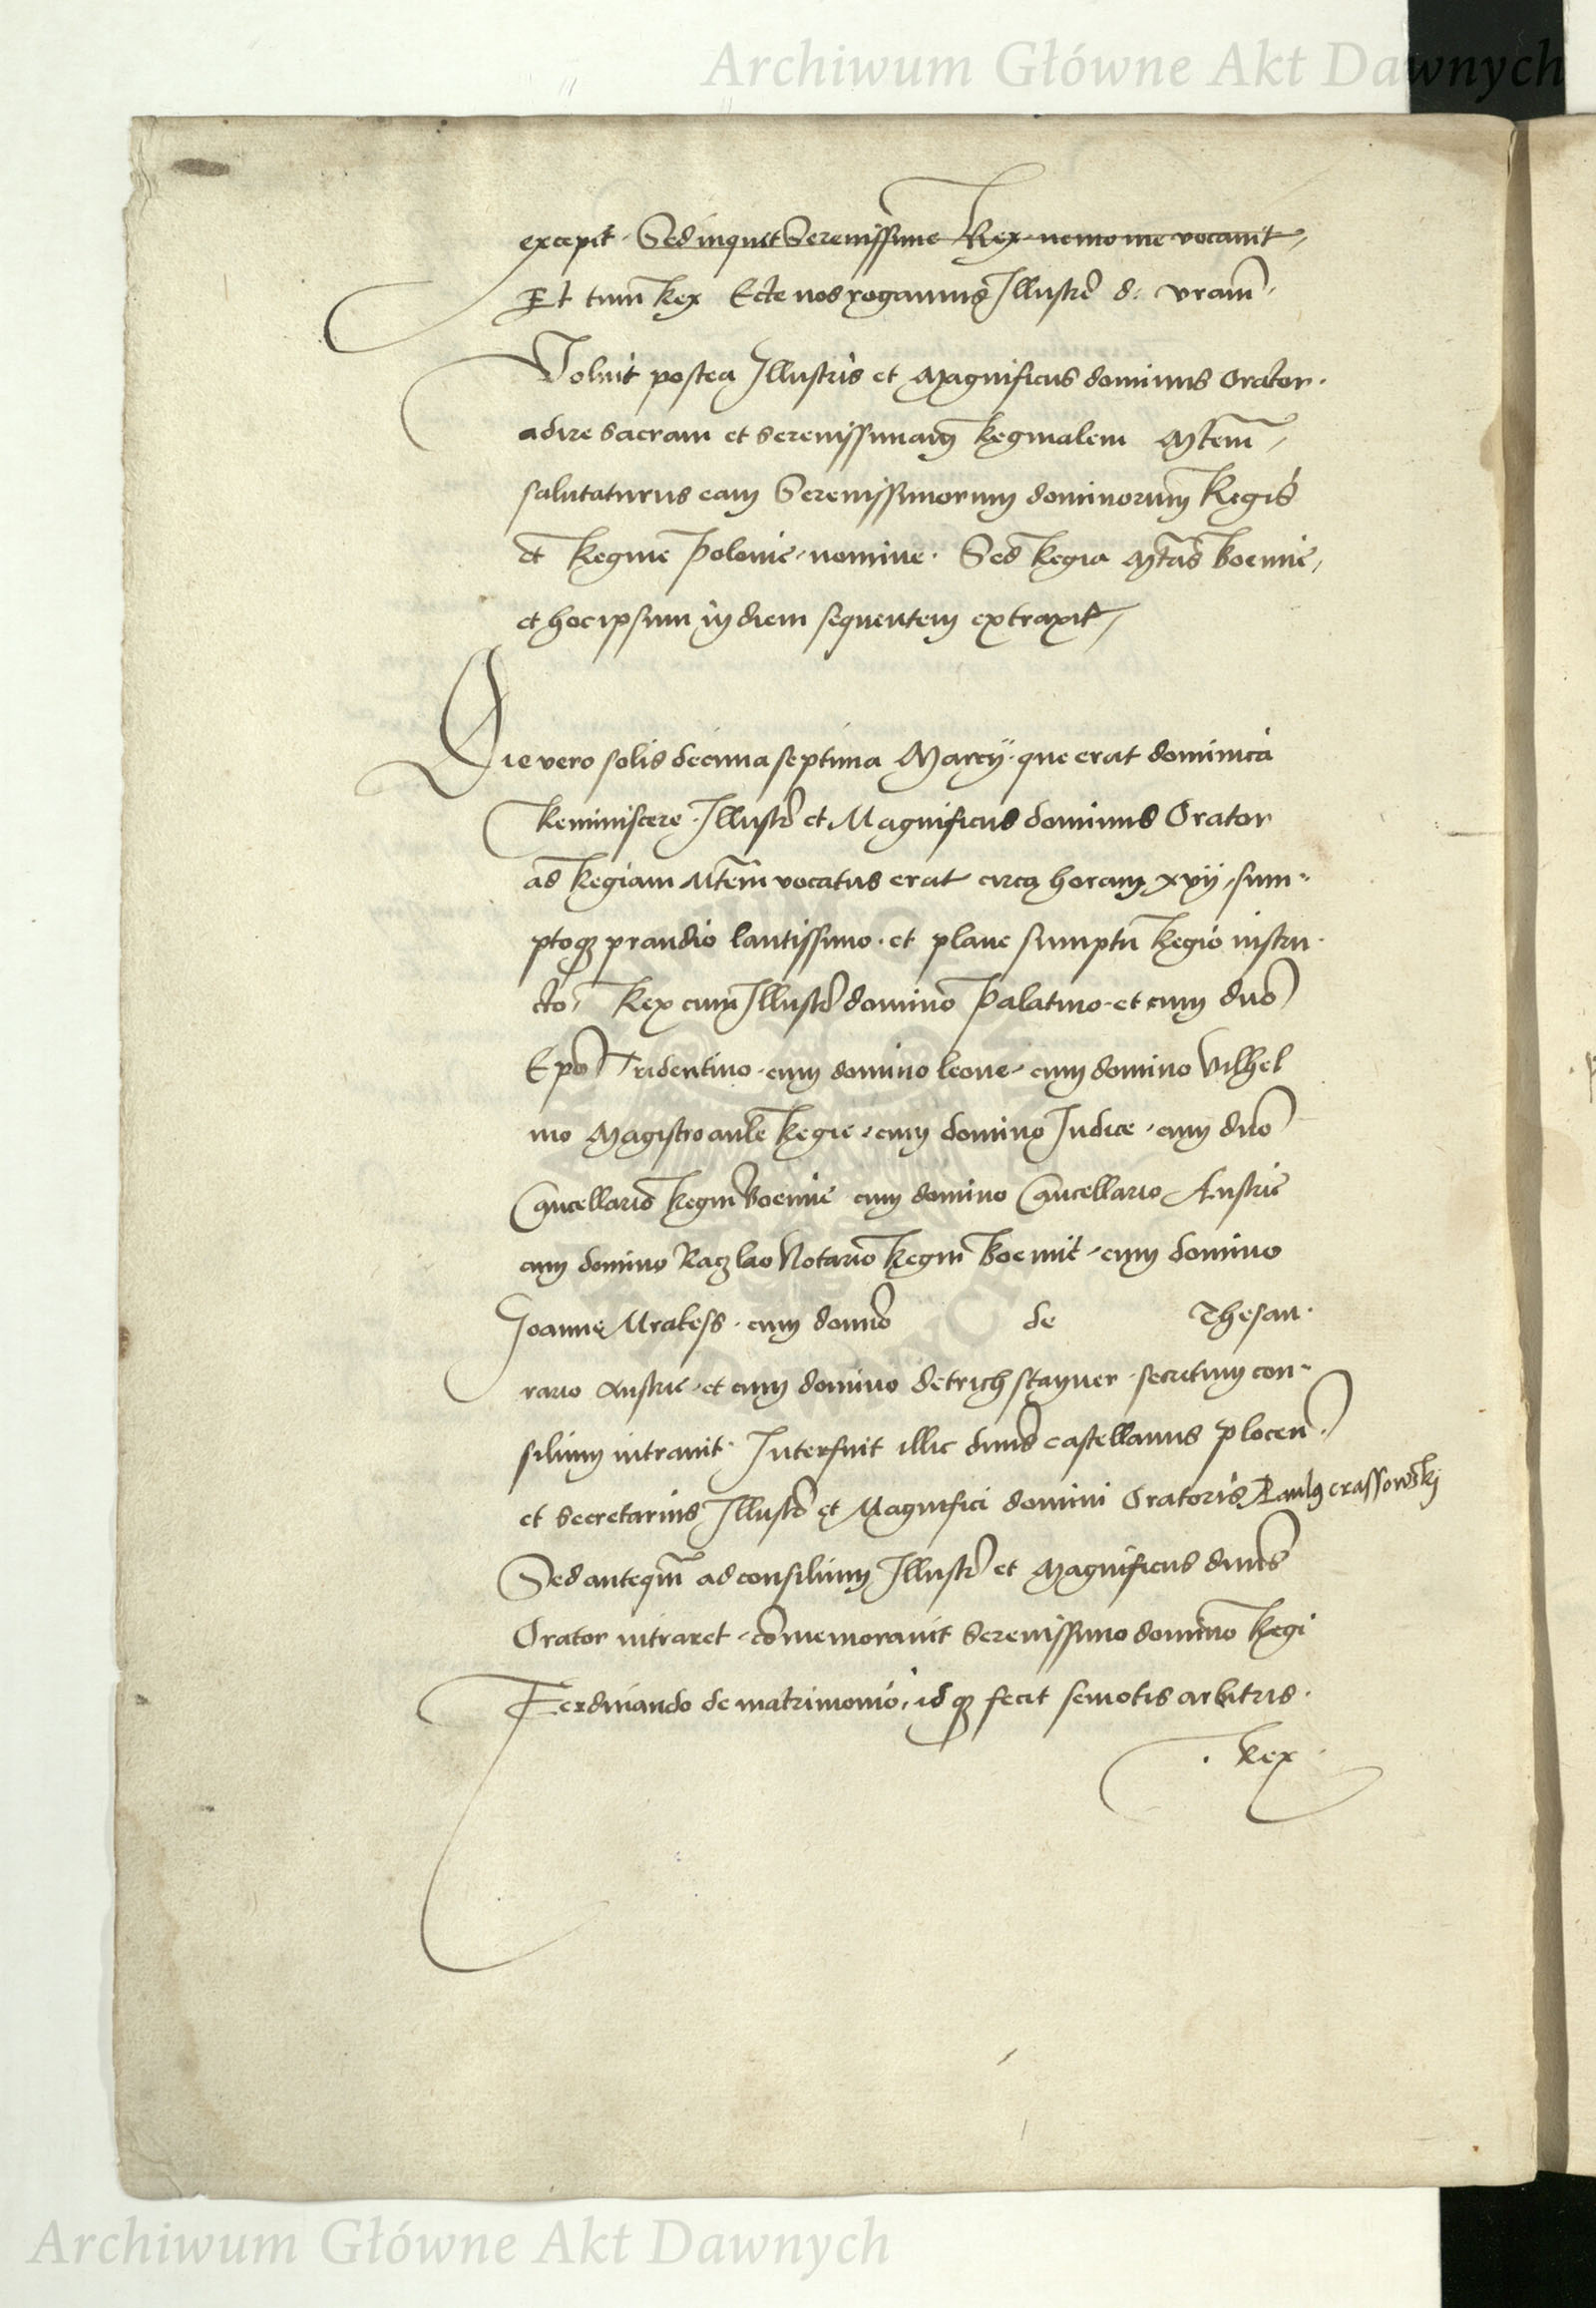 Archiwum Główne Akt Dawnych
excepit. Sed inquit Serenissime Rex nemo me vocauit,
Et tum Rex Ecce nos rogamus Illustrē d: vram,
Voluit postea Illustris et Magnificus dominus Orator.
adire sacram et serenissimam Reginalem Mtem,
salutaturus eam Serenissimorum dominorum Regis
et Regine Polonie, nomine. Sed Regia Mtas Boemie,
et hoc ipsum in diem sequentem extraxit,
Die vero solis decima septima Marcij. que erat dominica
Reminiscere. Illustr et Magnificus dominus Orator
ad Regiam Mtem vocatus erat circa horam xvij, sum-
ptoq prandio lautissimo. et plane sumptu Regio instru-
cto, Rex cum Illustr domino Palatino. et cum dno
Epo Tridentino. cum domino leone. cum domino Vilhel
mo Magistro aule Regie. cum domino Iudice. cum dno
Cancellario Regni Boemie cum domino Cancellario Austrie
cum domino Raczlao Notario Regni Boemie. cum domino
Joanne Mrakess. cum domino de Thesau-
rario Austrie. et cum domino detrich stayner. secretum con-
silium intrauit. Interfuit illic dnus castellanus plocen.
et secretarius Illustr et Magnifici domini Oratoris Paulus crassowski
Sed anteqm ad consilium Illustr et Magnificus dnus
Orator intraret, comemorauit serenissimo domino Regi
Ferdinando de matrimonio, idq fecit semotis arbitris.
. Rex.
Archiwum Główne Akt Dawnych